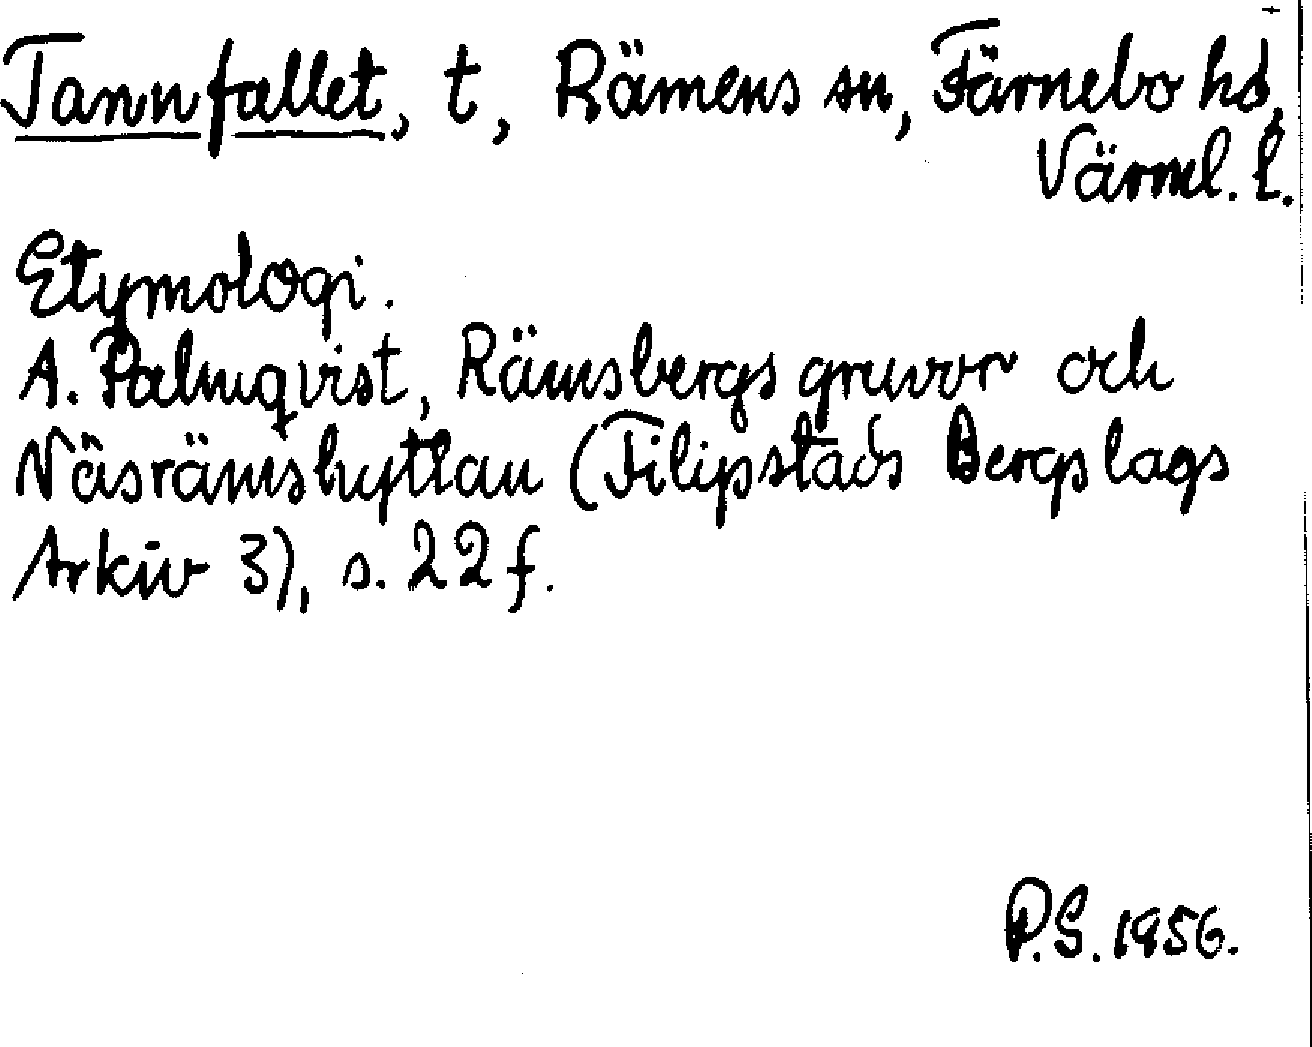 Tannfallet, t, Rämens sn, Färnebo hd,
Värml. l.
Etymologi.
A. Palmqvist, Rämsbergs gruvor och
Näsrämshyttan (Filipstads Bergslags
Arkiv 3), s. 22 f.
P.S. 1956.